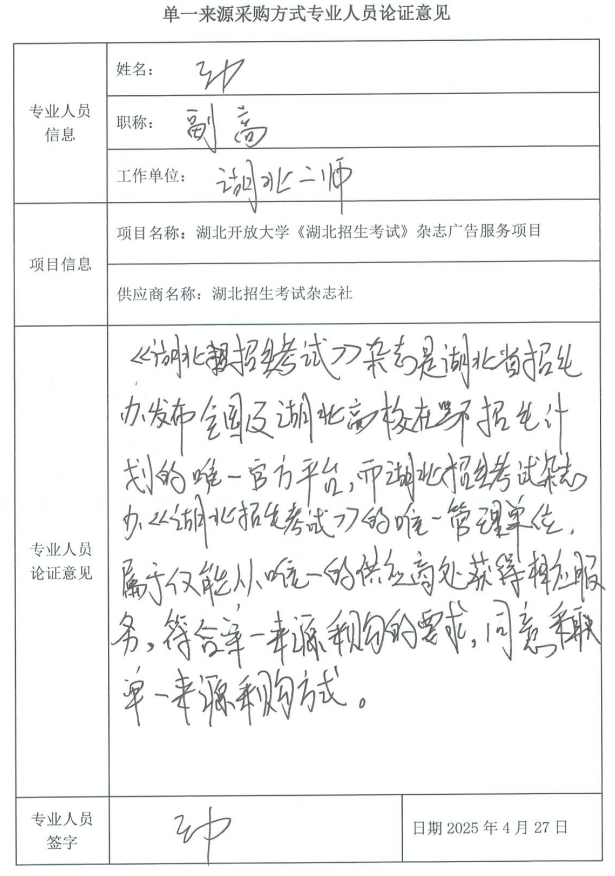 单一来源采购方式专业人员论证意见
专业人员
信息
姓名：
职称： 副高
工作单位： 湖北二师
项目信息
项目名称：湖北开放大学《湖北招生考试》杂志广告服务项目
供应商名称：湖北招生考试杂志社
专业人员
论证意见
《湖北招生考试》杂志是湖北省招生
办发布全国及湖北高校在 招生计
划的唯一官方平台，而湖北招生考试杂志
办《湖北招生考试》的唯一管理单位，
属于仅能从唯一的供应商处获得相应服
务，符合单一来源采购的要求，同意采取
单一来源采购方式。
专业人员
签字
日期 2025 年 4 月 27 日